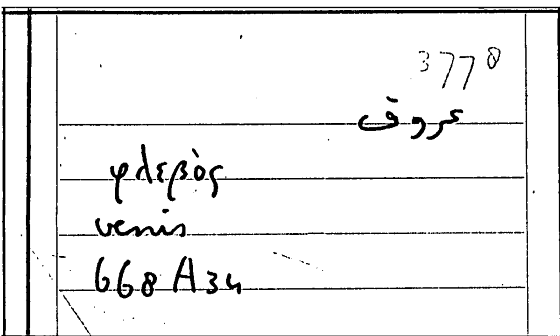 3778
عروق
φλεβὸς
venis
668A34